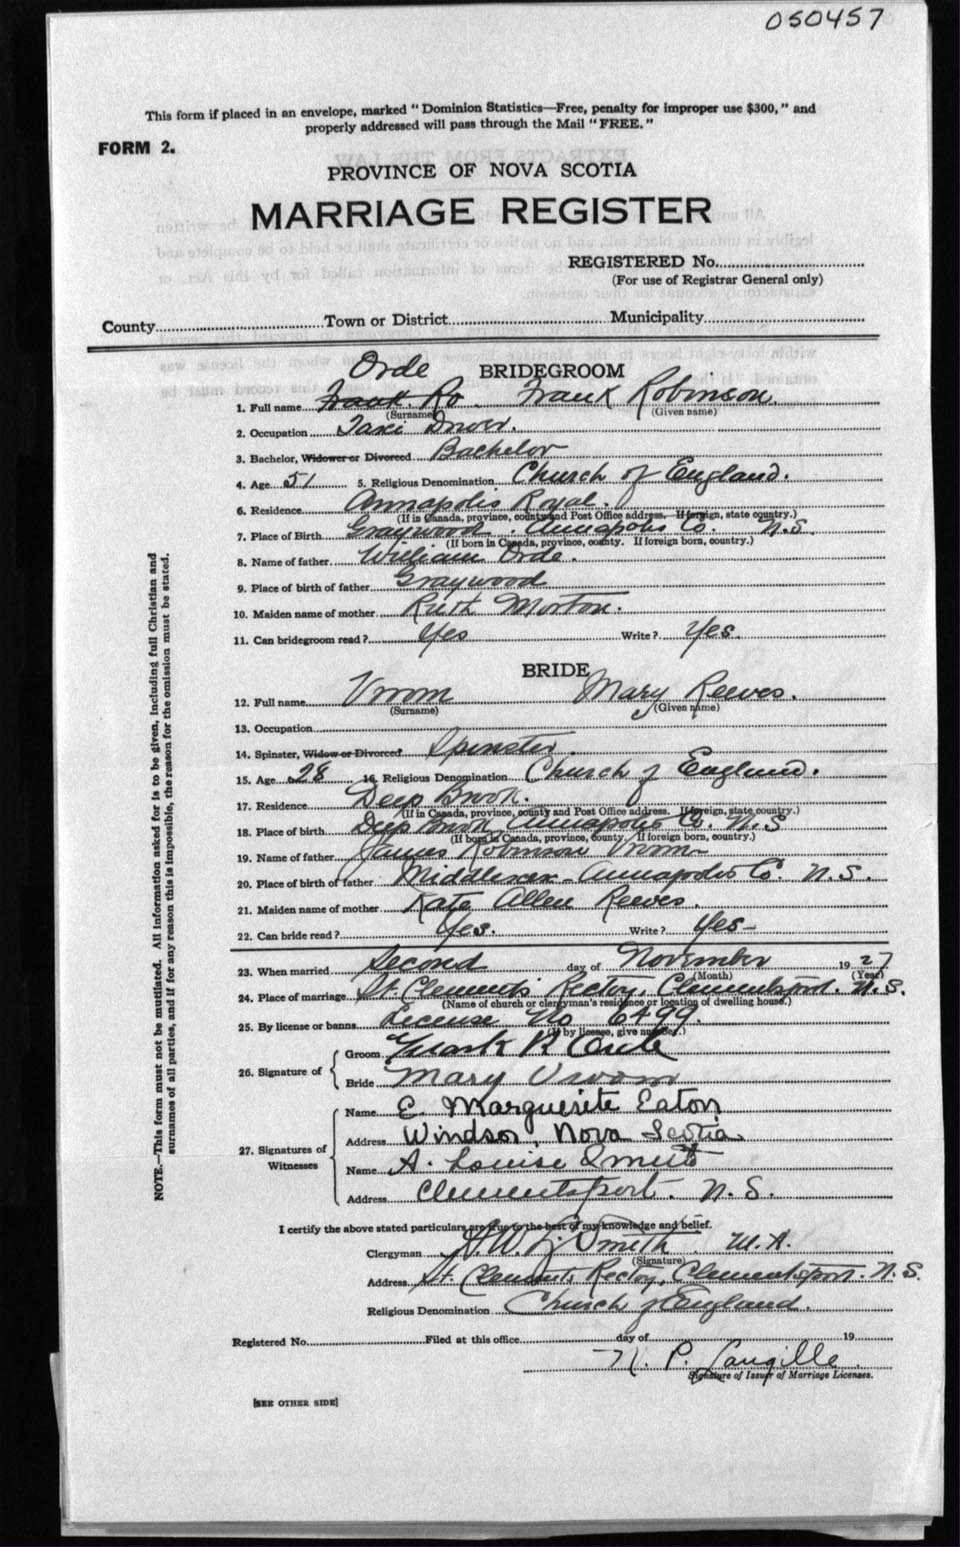 050457
This form if placed in an envelope, marked "Dominion Statistics—Free, penalty for improper use $300," and
properly addressed will pass through the Mail "FREE."
FORM 2.
PROVINCE OF NOVA SCOTIA
MARRIAGE REGISTER
REGISTERED No.
(For use of Registrar General only)
County Town or District Municipality
BRIDEGROOM
Orde
1. Full name Frank Ro Frank Robinson
(Surname) (Given name)
2. Occupation Taxi Driver.
3. Bachelor, Widower or Divorced Bachelor
4. Age 51 5. Religious Denomination Church of England.
6. Residence Annapolis Royal.
(If in Canada, province, county and Post Office address. If foreign, state country.)
7. Place of Birth Graywood. Annapolis Co. N.S.
(If born in Canada, province, county. If foreign born, country.)
8. Name of father William Orde.
9. Place of birth of father Graywood
10. Maiden name of mother Ruth Morton.
11. Can bridegroom read? Yes Write? Yes.
BRIDE
12. Full name Vroom Mary Reeves.
(Surname) (Given name)
13. Occupation
14. Spinster, Widow or Divorced Spinster.
15. Age 28 16. Religious Denomination Church of England.
17. Residence Deep Brook.
(If in Canada, province, county and Post Office address. If foreign, state country.)
18. Place of birth Deep Brook Annapolis Co. N.S
(If born in Canada, province, county. If foreign born, country.)
19. Name of father James Robinson Vroom
20. Place of birth of father Middlesex - Annapolis Co. N.S.
21. Maiden name of mother Kate Allen Reeves.
22. Can bride read? Yes. Write? Yes—
23. When married Second day of November 1927
(Month) (Year)
24. Place of marriage St. Clement's Rectory, Clementsport. N.S.
(Name of church or clergyman's residence or location of dwelling house.)
25. By license or banns License No 6499.
(If by license, give number.)
26. Signature of Groom Frank R Orde
Bride Mary Vroom
27. Signatures of Witnesses Name E. Marguerite Eaton
Address Windsor, Nova Scotia
Name A. Louise
Address Clementsport. N.S.
I certify the above stated particulars are true to the best of my knowledge and belief.
Clergyman Smith M.A.
(Signature)
Address St. Clement's Rectory, Clementsport. N.S.
Religious Denomination Church of England.
Registered No. Filed at this office day of 19
P. Langille
Signature of Issuer of Marriage Licenses.
[SEE OTHER SIDE]
NOTE.—This form must not be mutilated. All information asked for is to be given, including full Christian and
surnames of all parties, and if for any reason this is impossible, the reason for the omission must be stated.